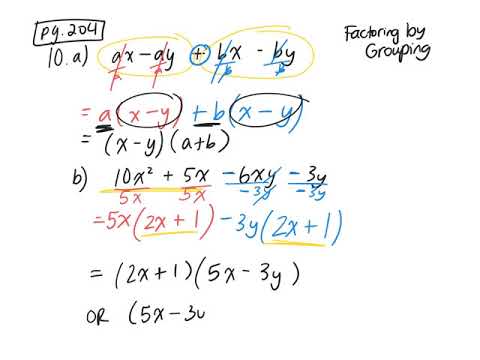 pg. 204
Factoring by
Grouping
10. a) ax - ay + bx - by
a a b b
= a(x-y) + b(x-y)
= (x-y)(a+b)
b) 10x² + 5x - 6xy - 3y
5x 5x -3y -3y
= 5x(2x+1) - 3y(2x+1)
= (2x+1)(5x-3y)
OR (5x-3y